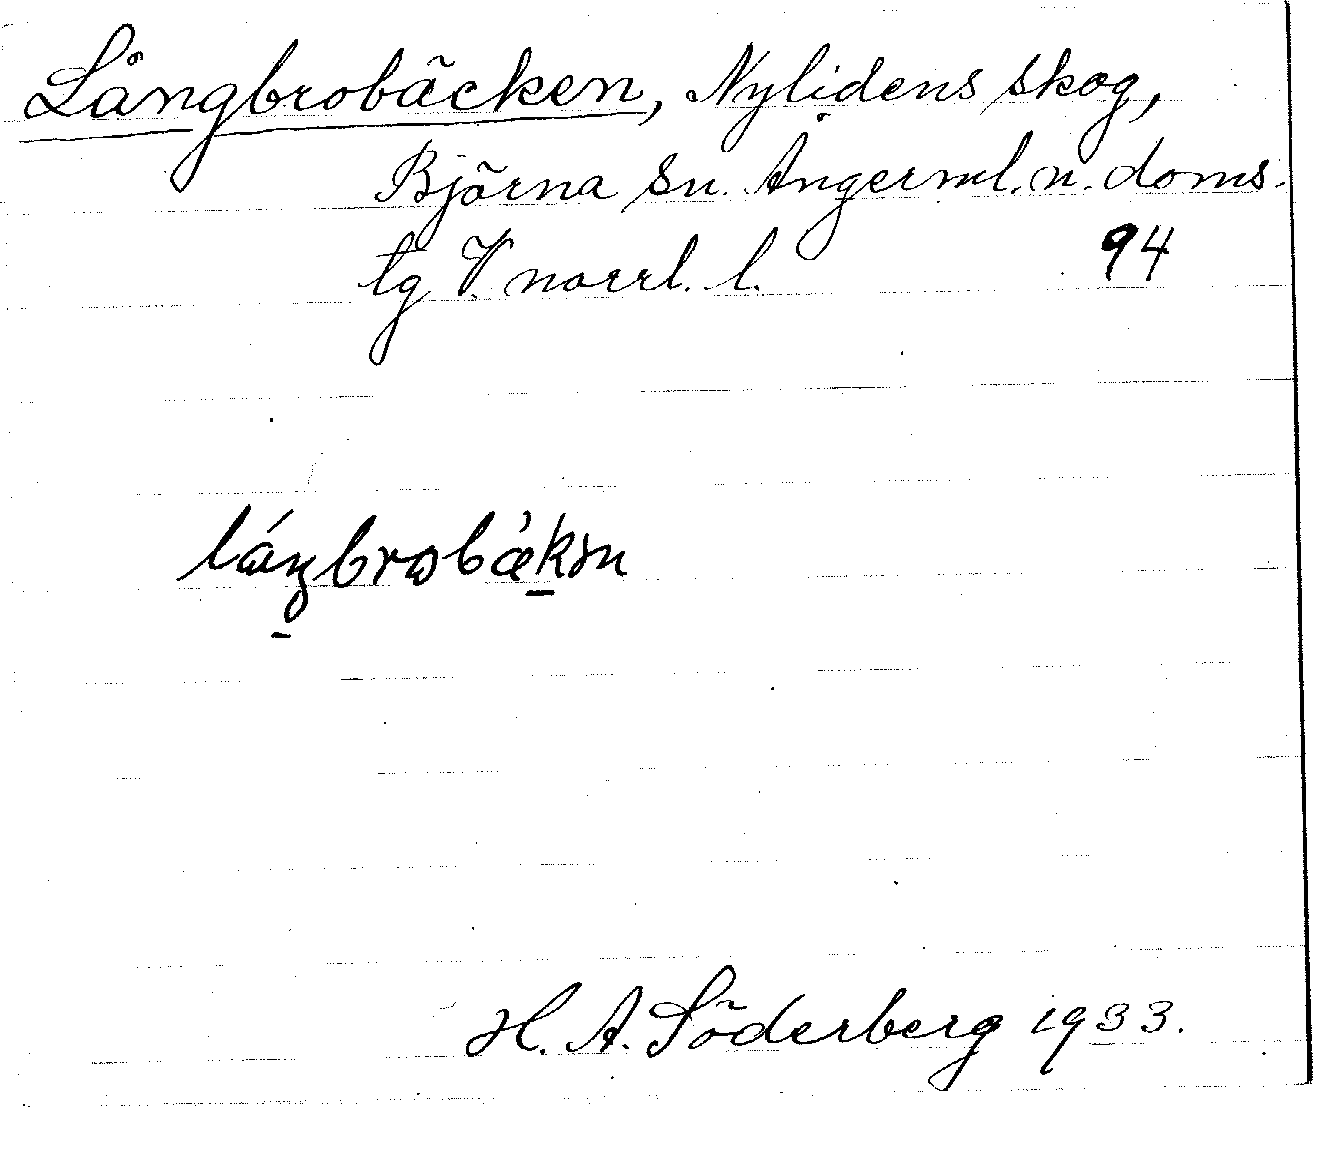 Långbrobäcken, Nylidens skog,
Björna sn. Ångerml. n. doms.
tg V. norrl. l. 94
H. A. Söderberg 1933.